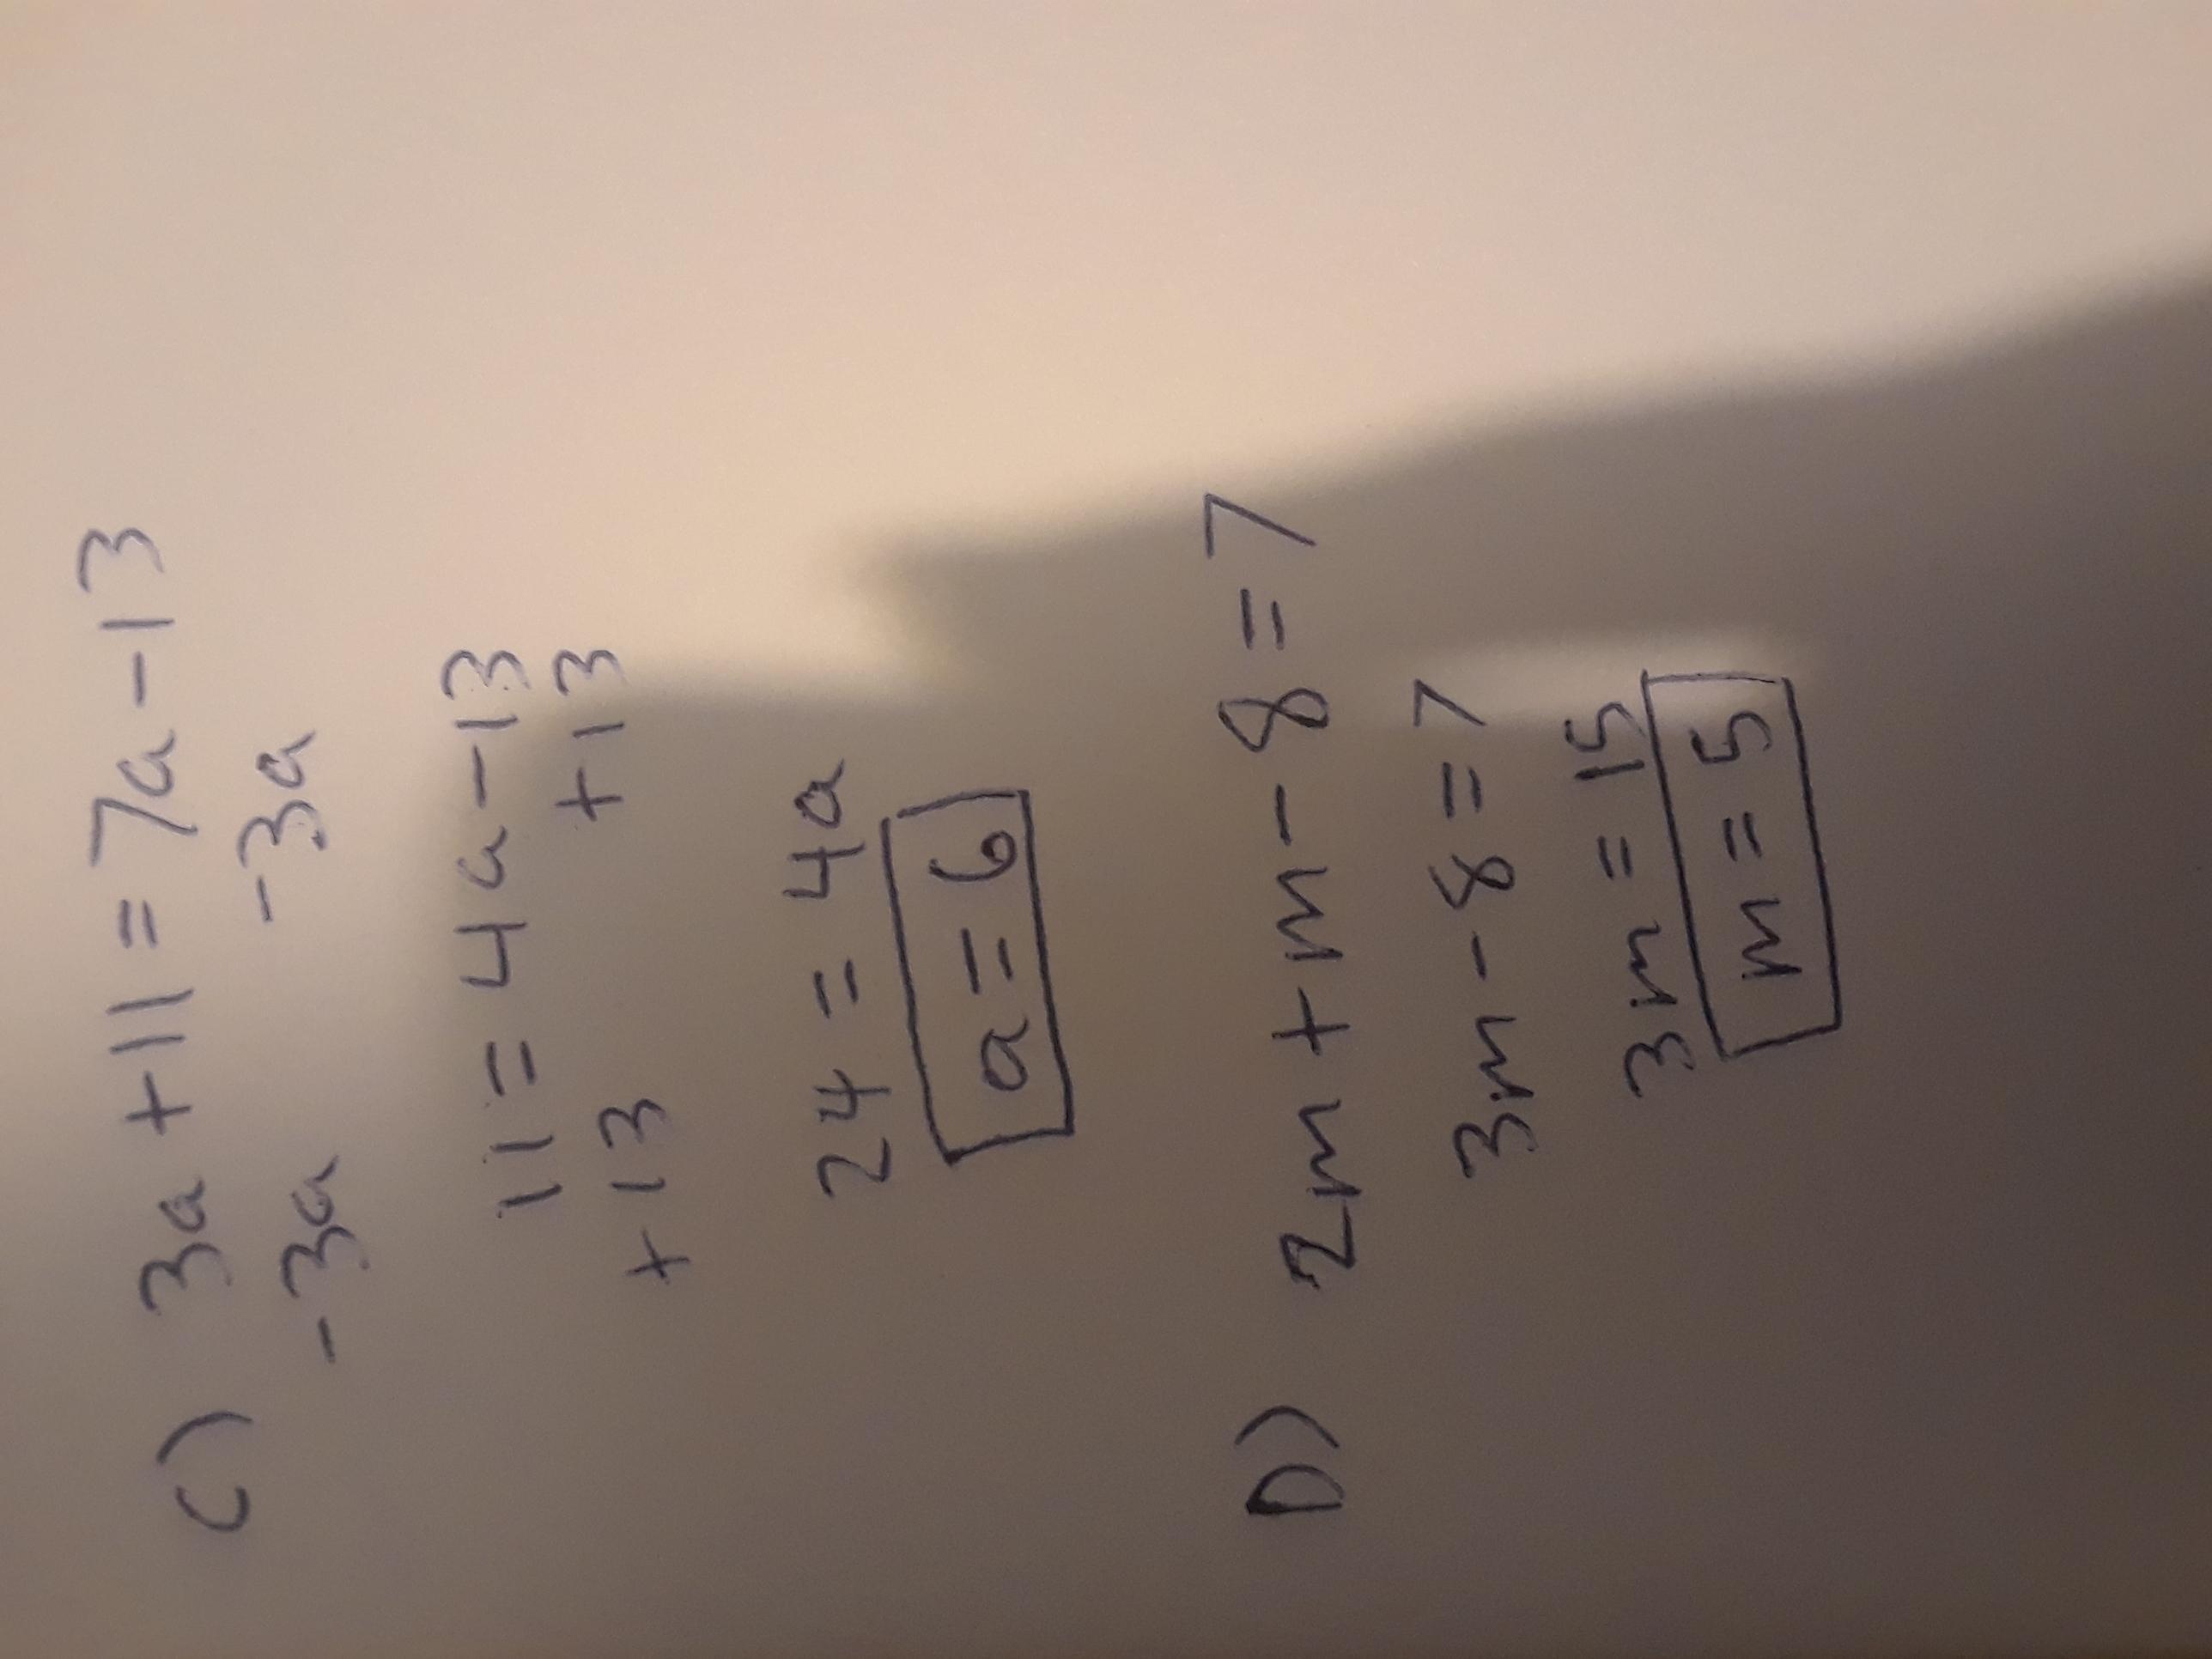 C) 3a + 11 = 7a - 13
-3a -3a
11 = 4a - 13
+13 +13
24 = 4a
a = 6
D) 2m + m - 8 = 7
3m - 8 = 7
3m = 15
m = 5